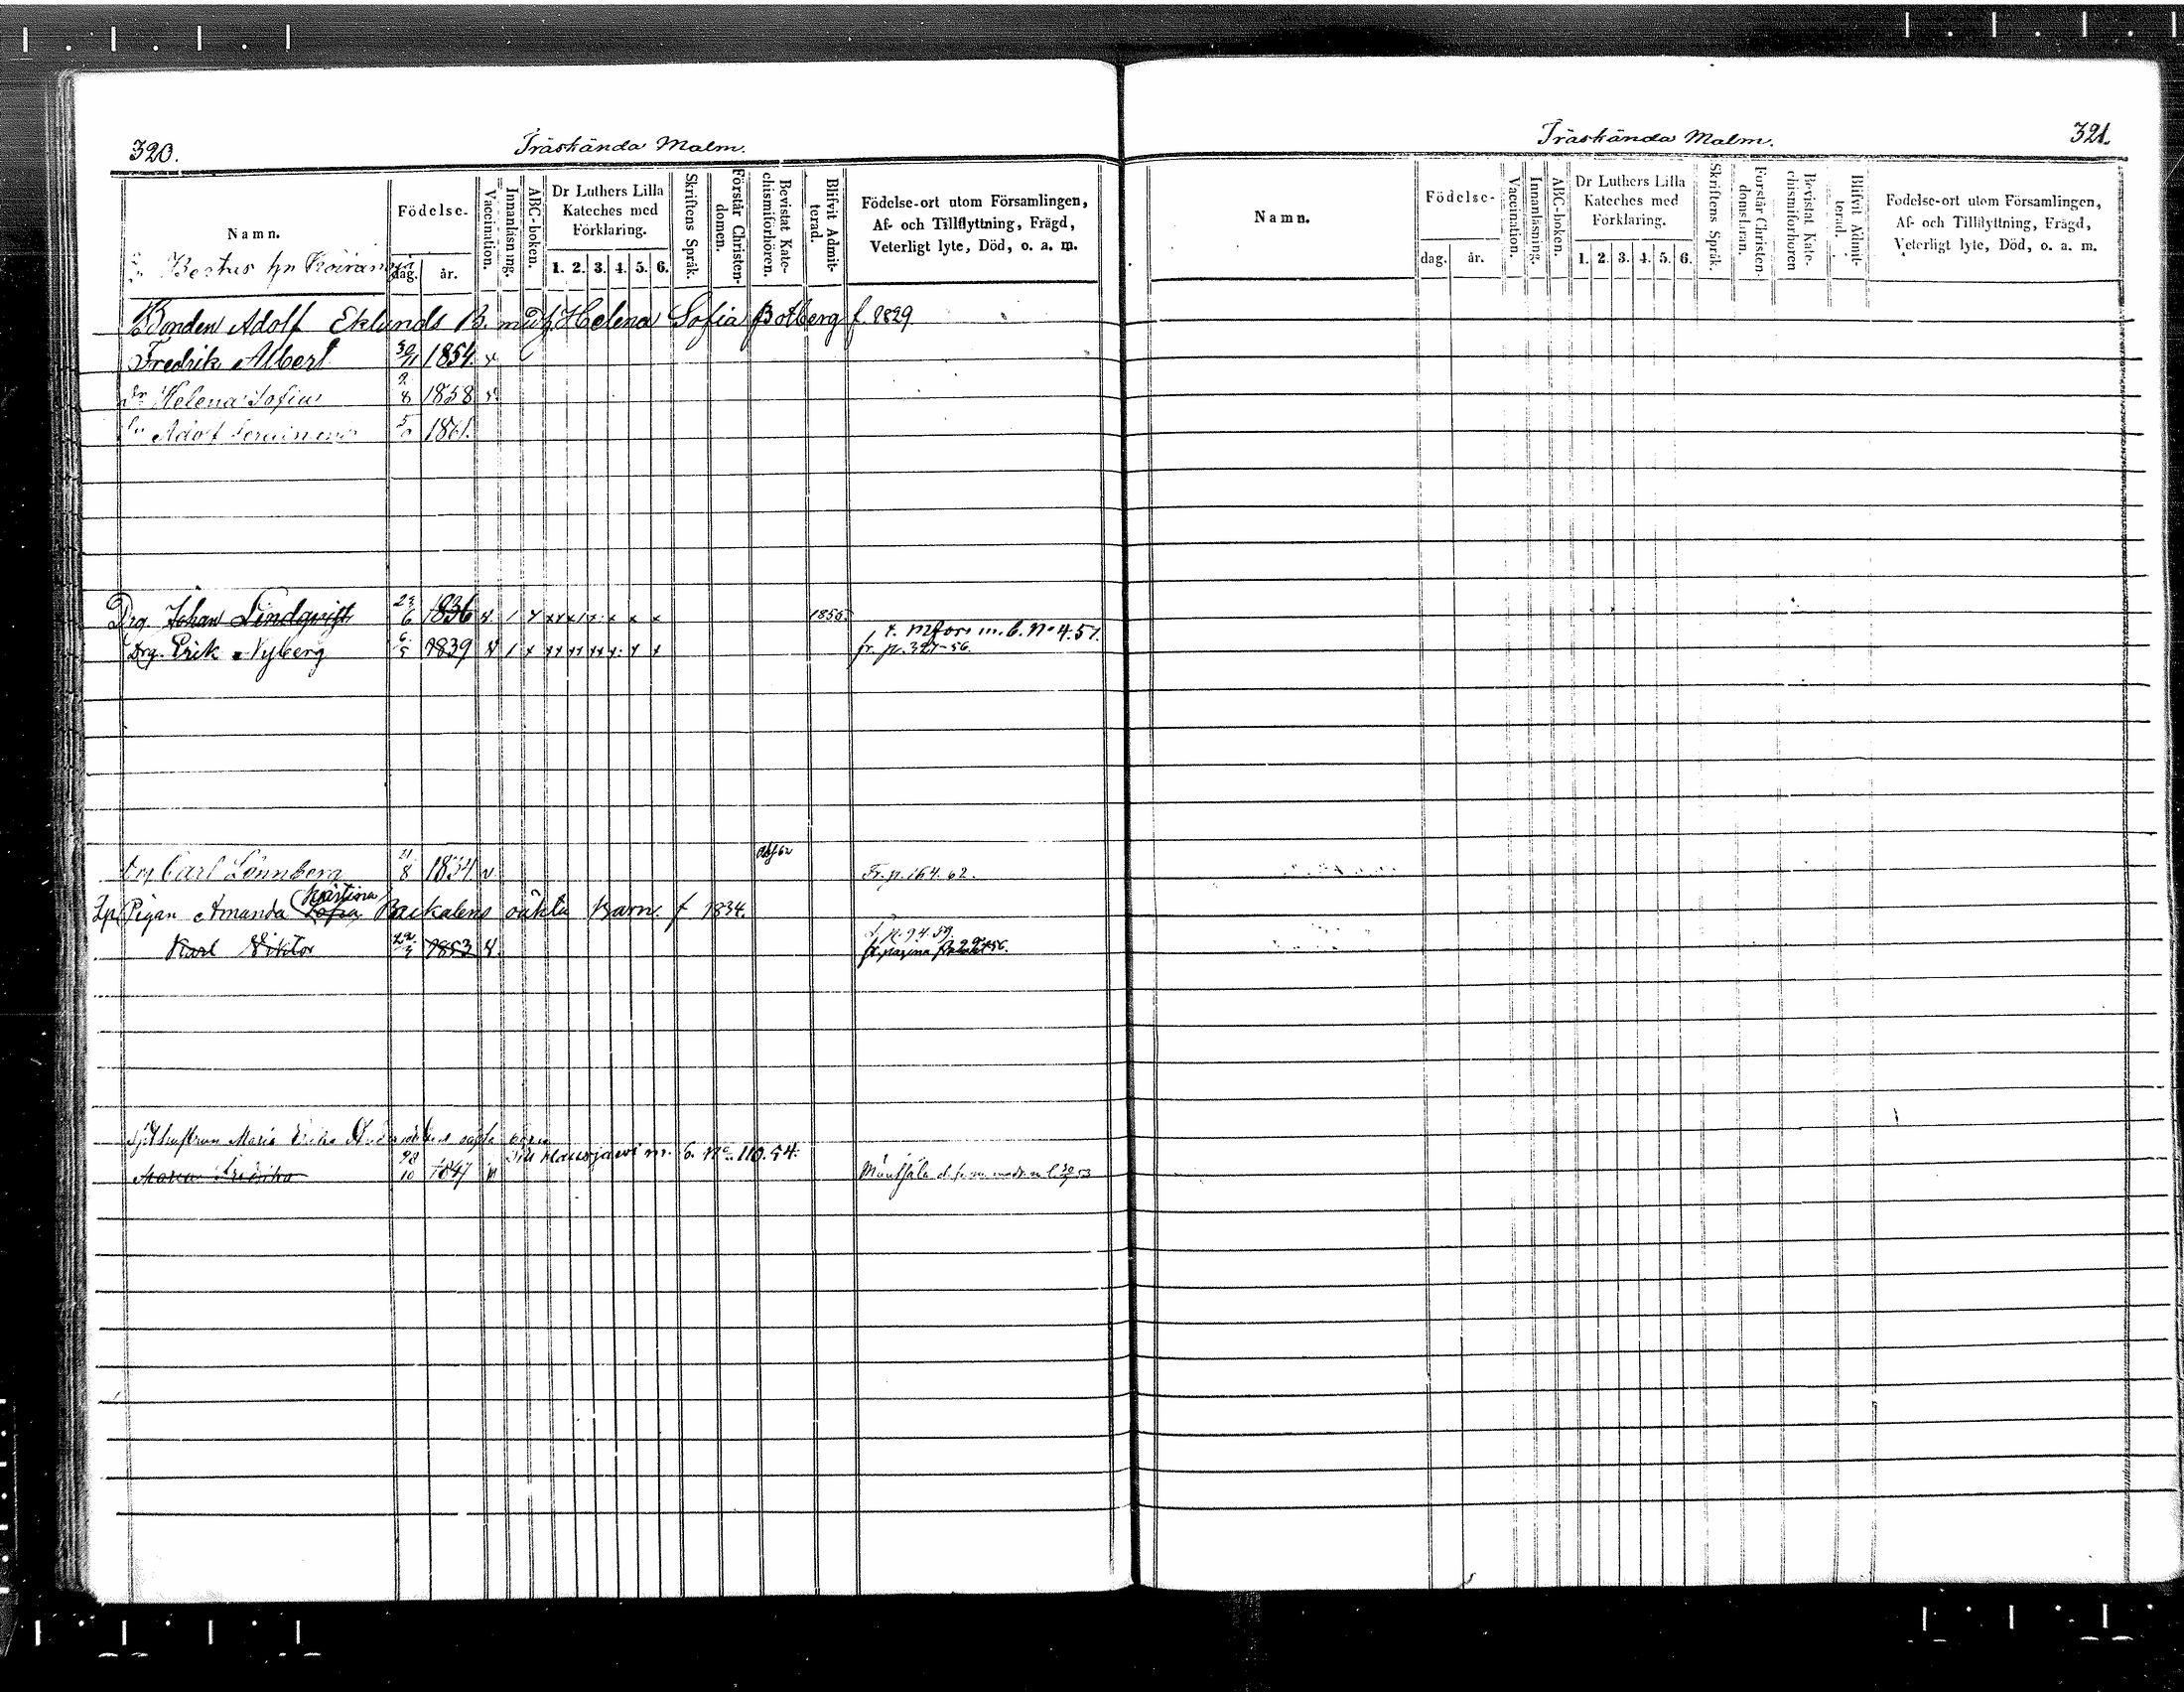 320.
Träskända Malm.
Namn.
Födelse-
dag.
år.
Vaccination.
Innanläsning.
ABC-boken.
Dr Luthers Lilla
Kateches med
Förklaring.
1. 2. 3. 4. 5. 6.
Skriftens Språk.
Förstår Christen-
domen.
Bevistat Kate-
chismiförhören.
Blifvit Admit-
terad.
Födelse-ort utom Församlingen,
Af- och Tillflyttning, Frägd,
Veterligt lyte, Död, o. a. m.
Bonden Adolf Eklunds B. m. Helena Sofia Botberg f. 1829
Fredrik Albert 30/11 1854. v
Dr Helena Sofia 9/8 1858 v
Sn Adolf 1861.
Drg. Johan Lindqvist 23/6 1836 v 1 x x x x x x x 1855.
t. Mfors m. b. No 4. 57.
Drg. Erik Nyberg 6/5 1839 v 1 x x x x x x x x fr. p. 327-56.
Drg Carl Lönnberg 21/8 1834 v Fr. p. 164. 62.
Kristina
Pigan Amanda Sofia oäkta Barn. f 1834.
t. p. 94. 59.
Karl Viktor 1853 v.
Maria Erika
Till Hausjärvi m. b. No 110. 54.
Maria Fredrika 28/10 1847 v
Träskända Malm.
321.
Namn.
Födelse-
dag. år.
Vaccination.
Innanläsning.
ABC-boken.
Dr Luthers Lilla
Kateches med
Förklaring.
1. 2. 3. 4. 5. 6.
Skriftens Språk.
Förstår Christen-
domsläran.
Bevistat Kate-
chismiförhören
Blifvit Admit-
terad.
Födelse-ort utom Församlingen,
Af- och Tillflyttning, Frägd,
Veterligt lyte, Död, o. a. m.